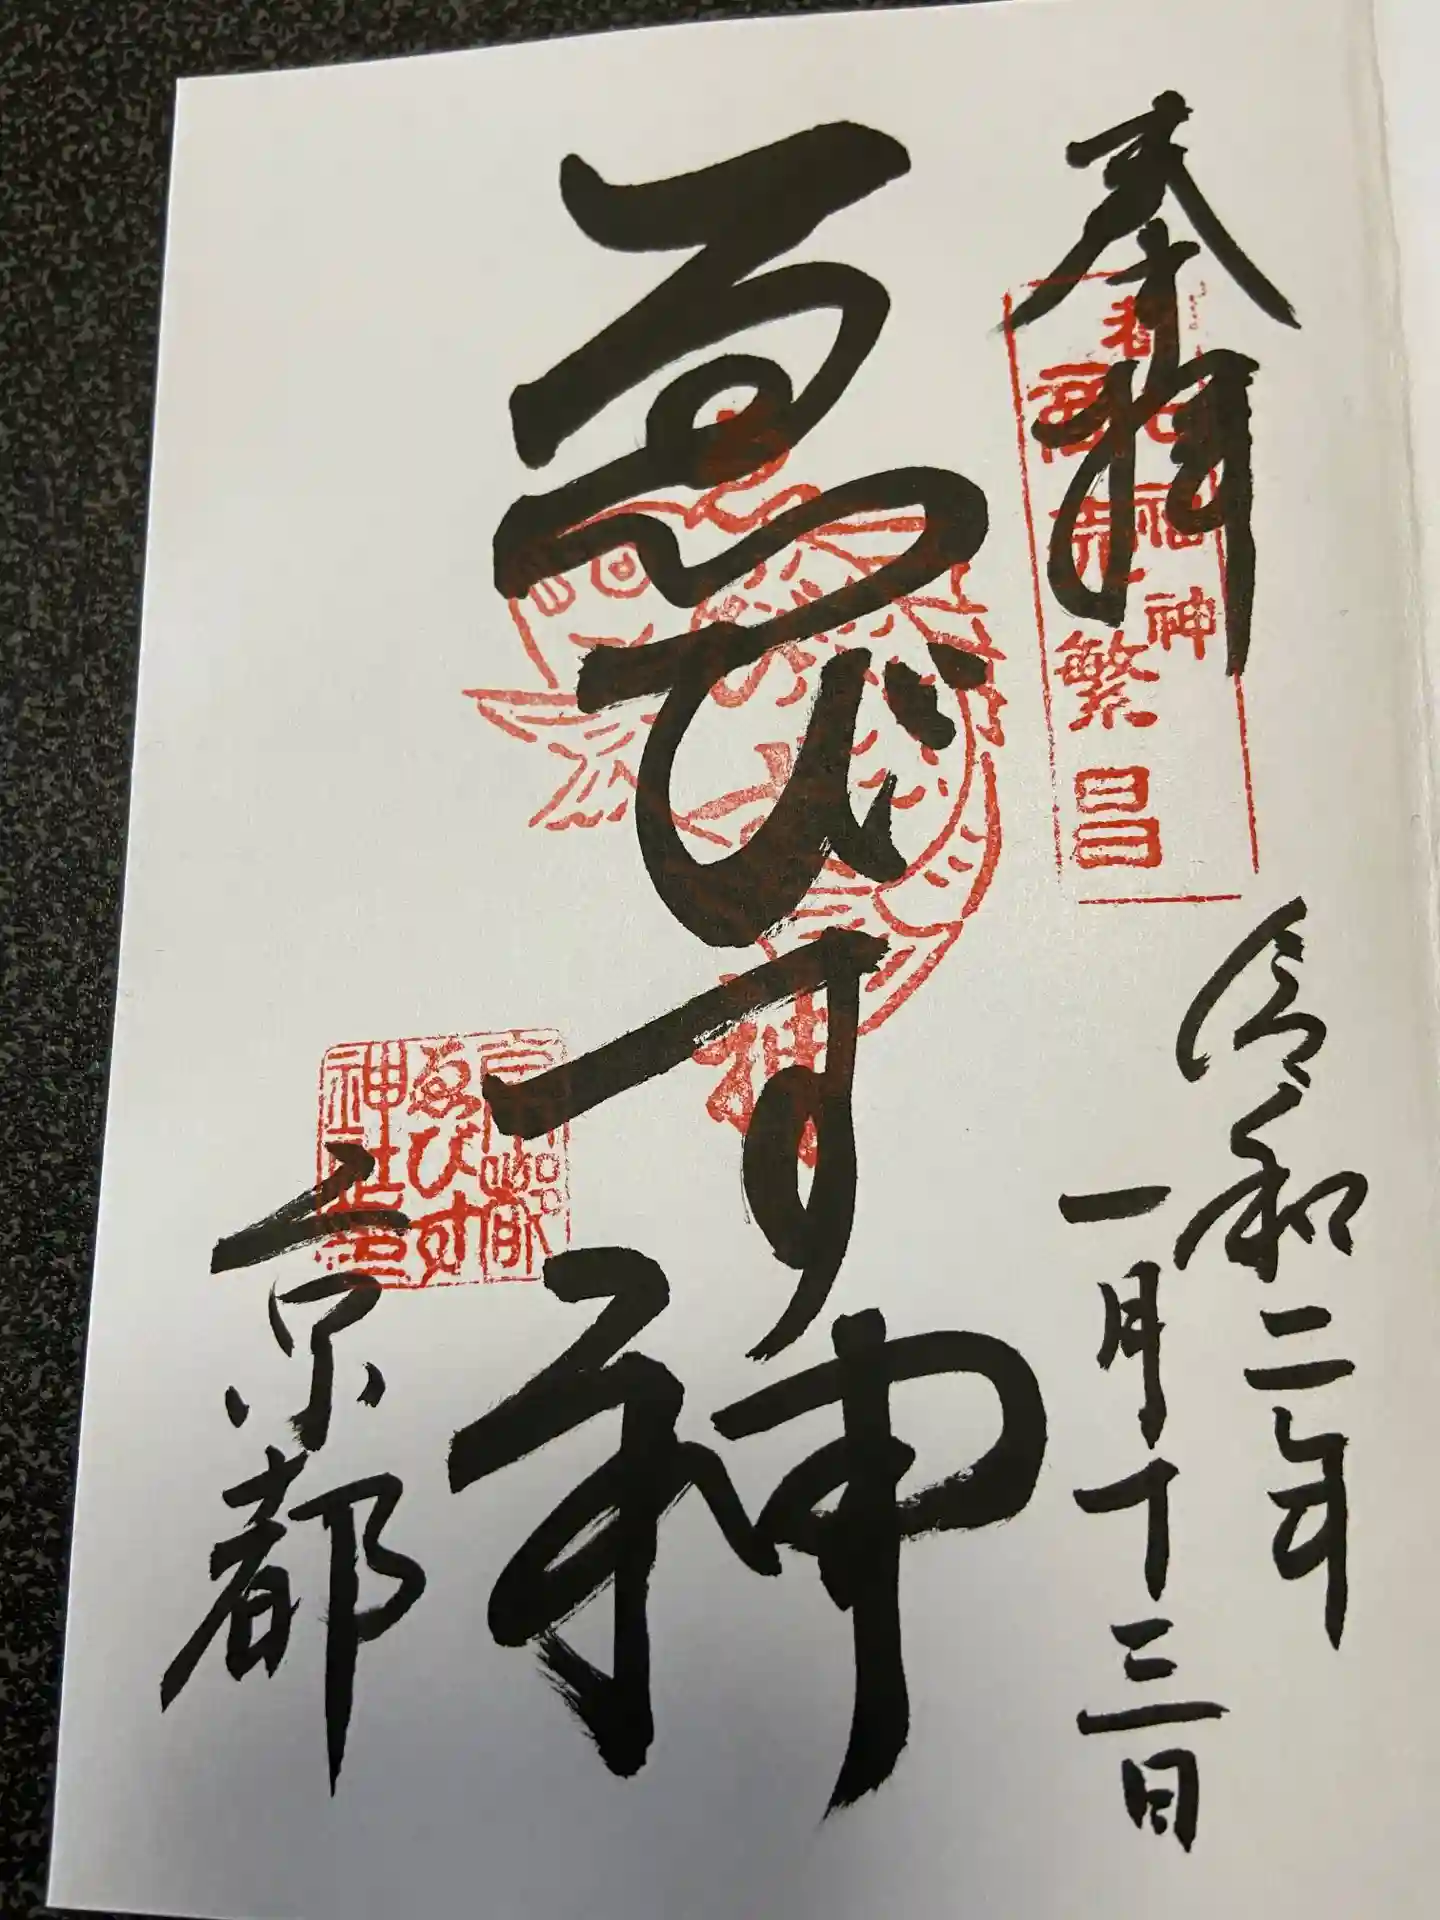 奉拝
都七福神
商売繁昌
令和二年
一月十三日
ゑびす神
京都
京都
ゑびす
神社印